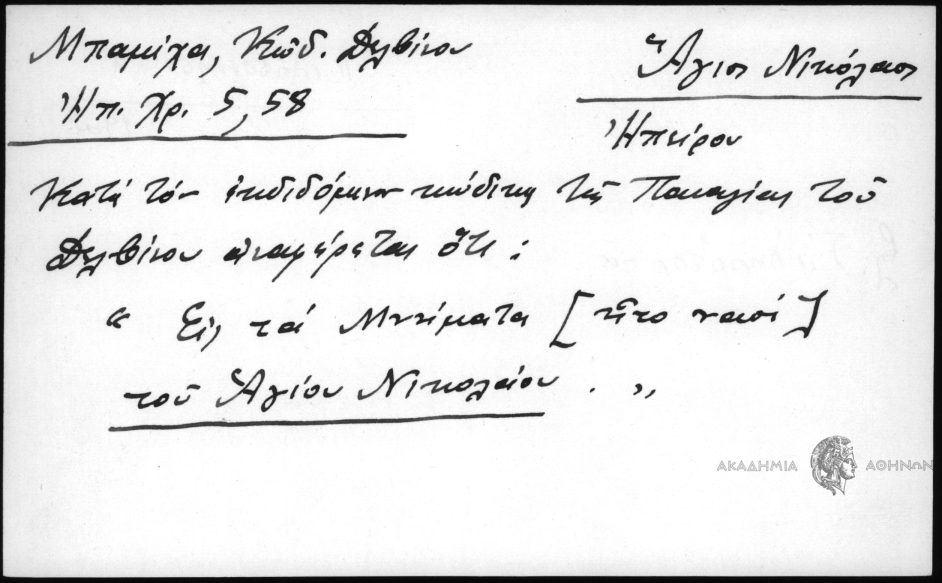 Μπαμίχα, Κῶδ. Δελβίνου
Ἠπ. Χρ. 5, 58
Ἅγιος Νικόλαος
Ἠπείρου
Κατά τόν ἐκδιδόμενον κώδικα τῆς Παναγίας τοῦ
Δελβίνου ἀναφέρεται ὅτι :
" Εἰς τά Μνήματα [ ἦτο ναοί ]
τοῦ Ἁγίου Νικολάου . "
ΑΚΑΔΗΜΙΑ ΑΘΗΝΩΝ